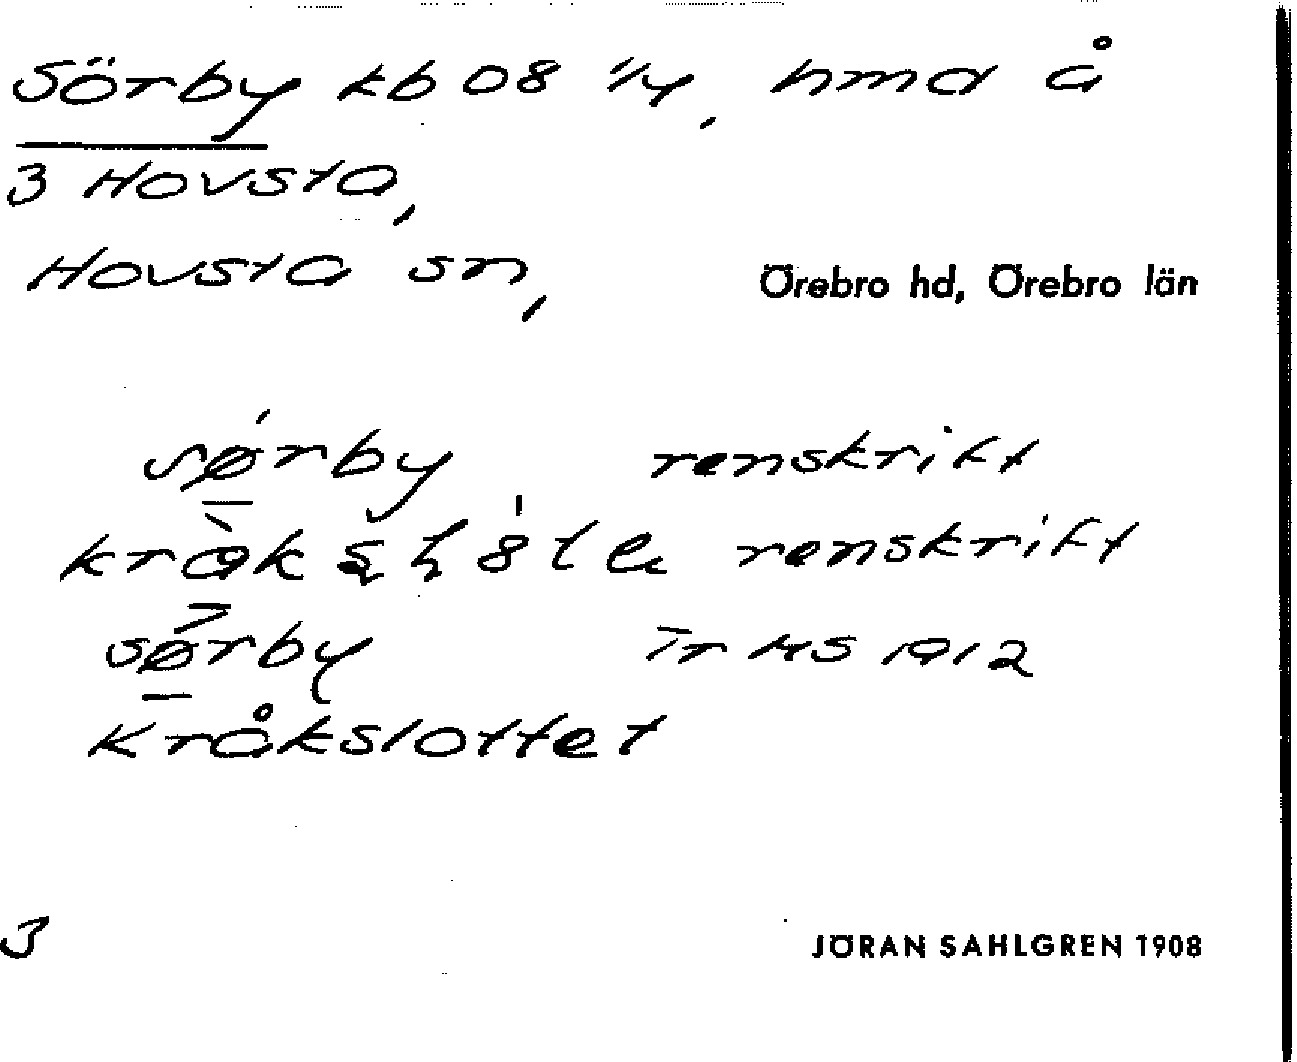 Sörby kb 08 1/4, hmd å
3 Hovsta,
Hovsta sn,
Örebro hd, Örebro län
sørby renskrift
renskrift
sørby HS 1912
Kråkslottet
3
JÖRAN SAHLGREN 1908